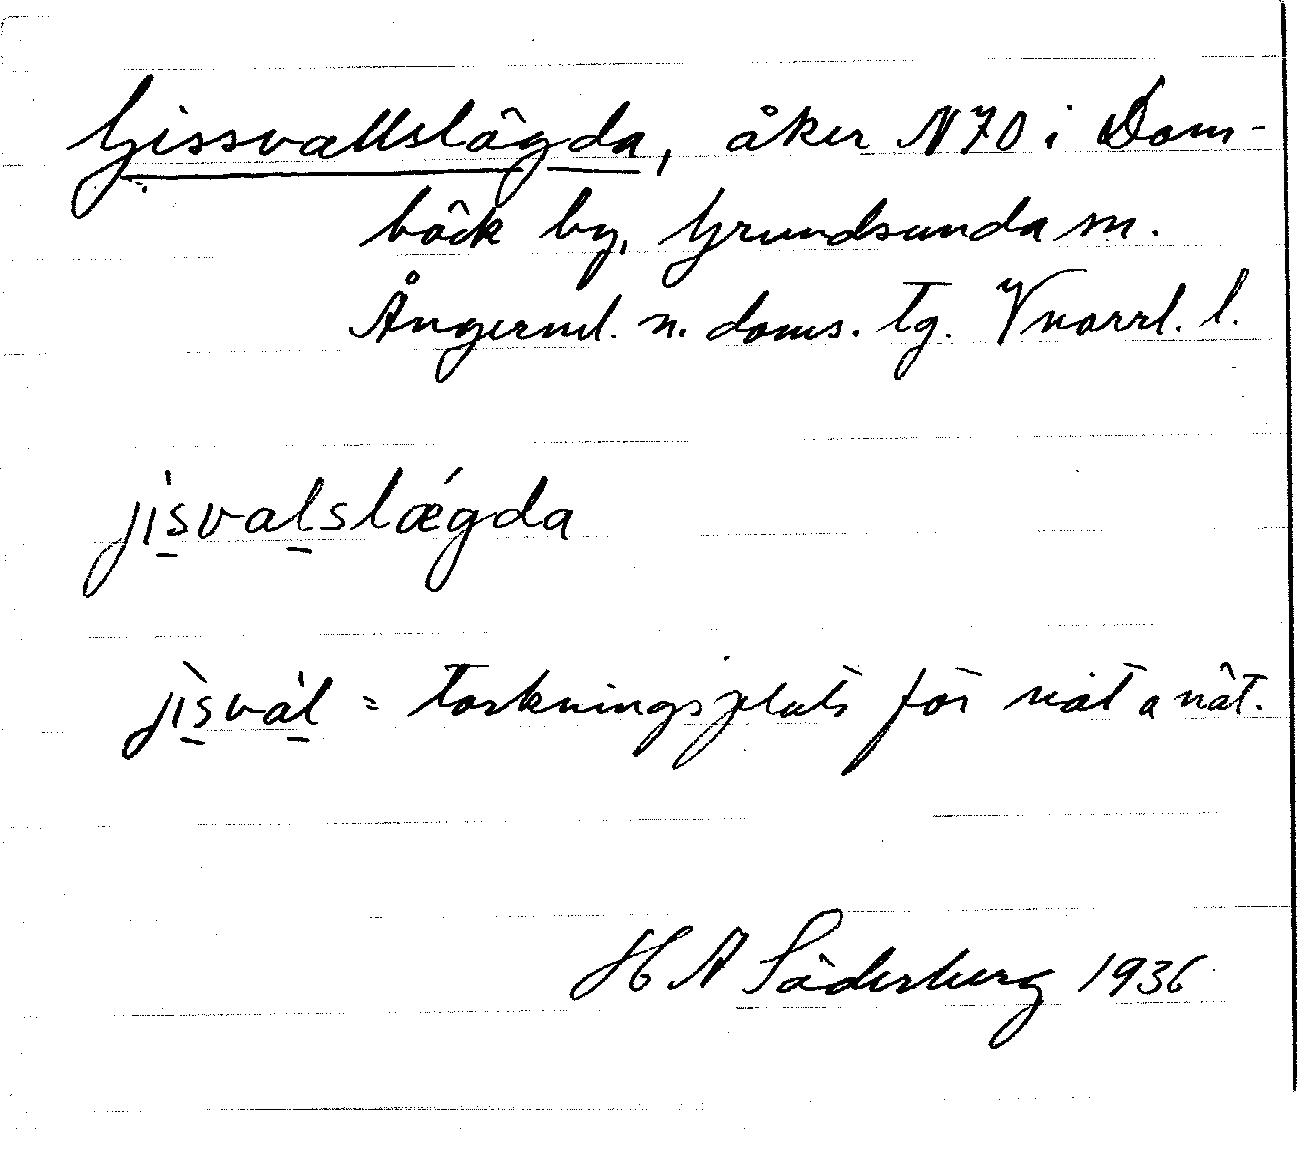 Gissvallslägda, åker N70 i Dom-
bäck by, Grundsunda sn.
Ångerml. n. doms. tg. Vnorrl. l.
jìsvalslǽgda
jìsvàl = torkningsplats för nät o nöt.
H A Söderberg 1936